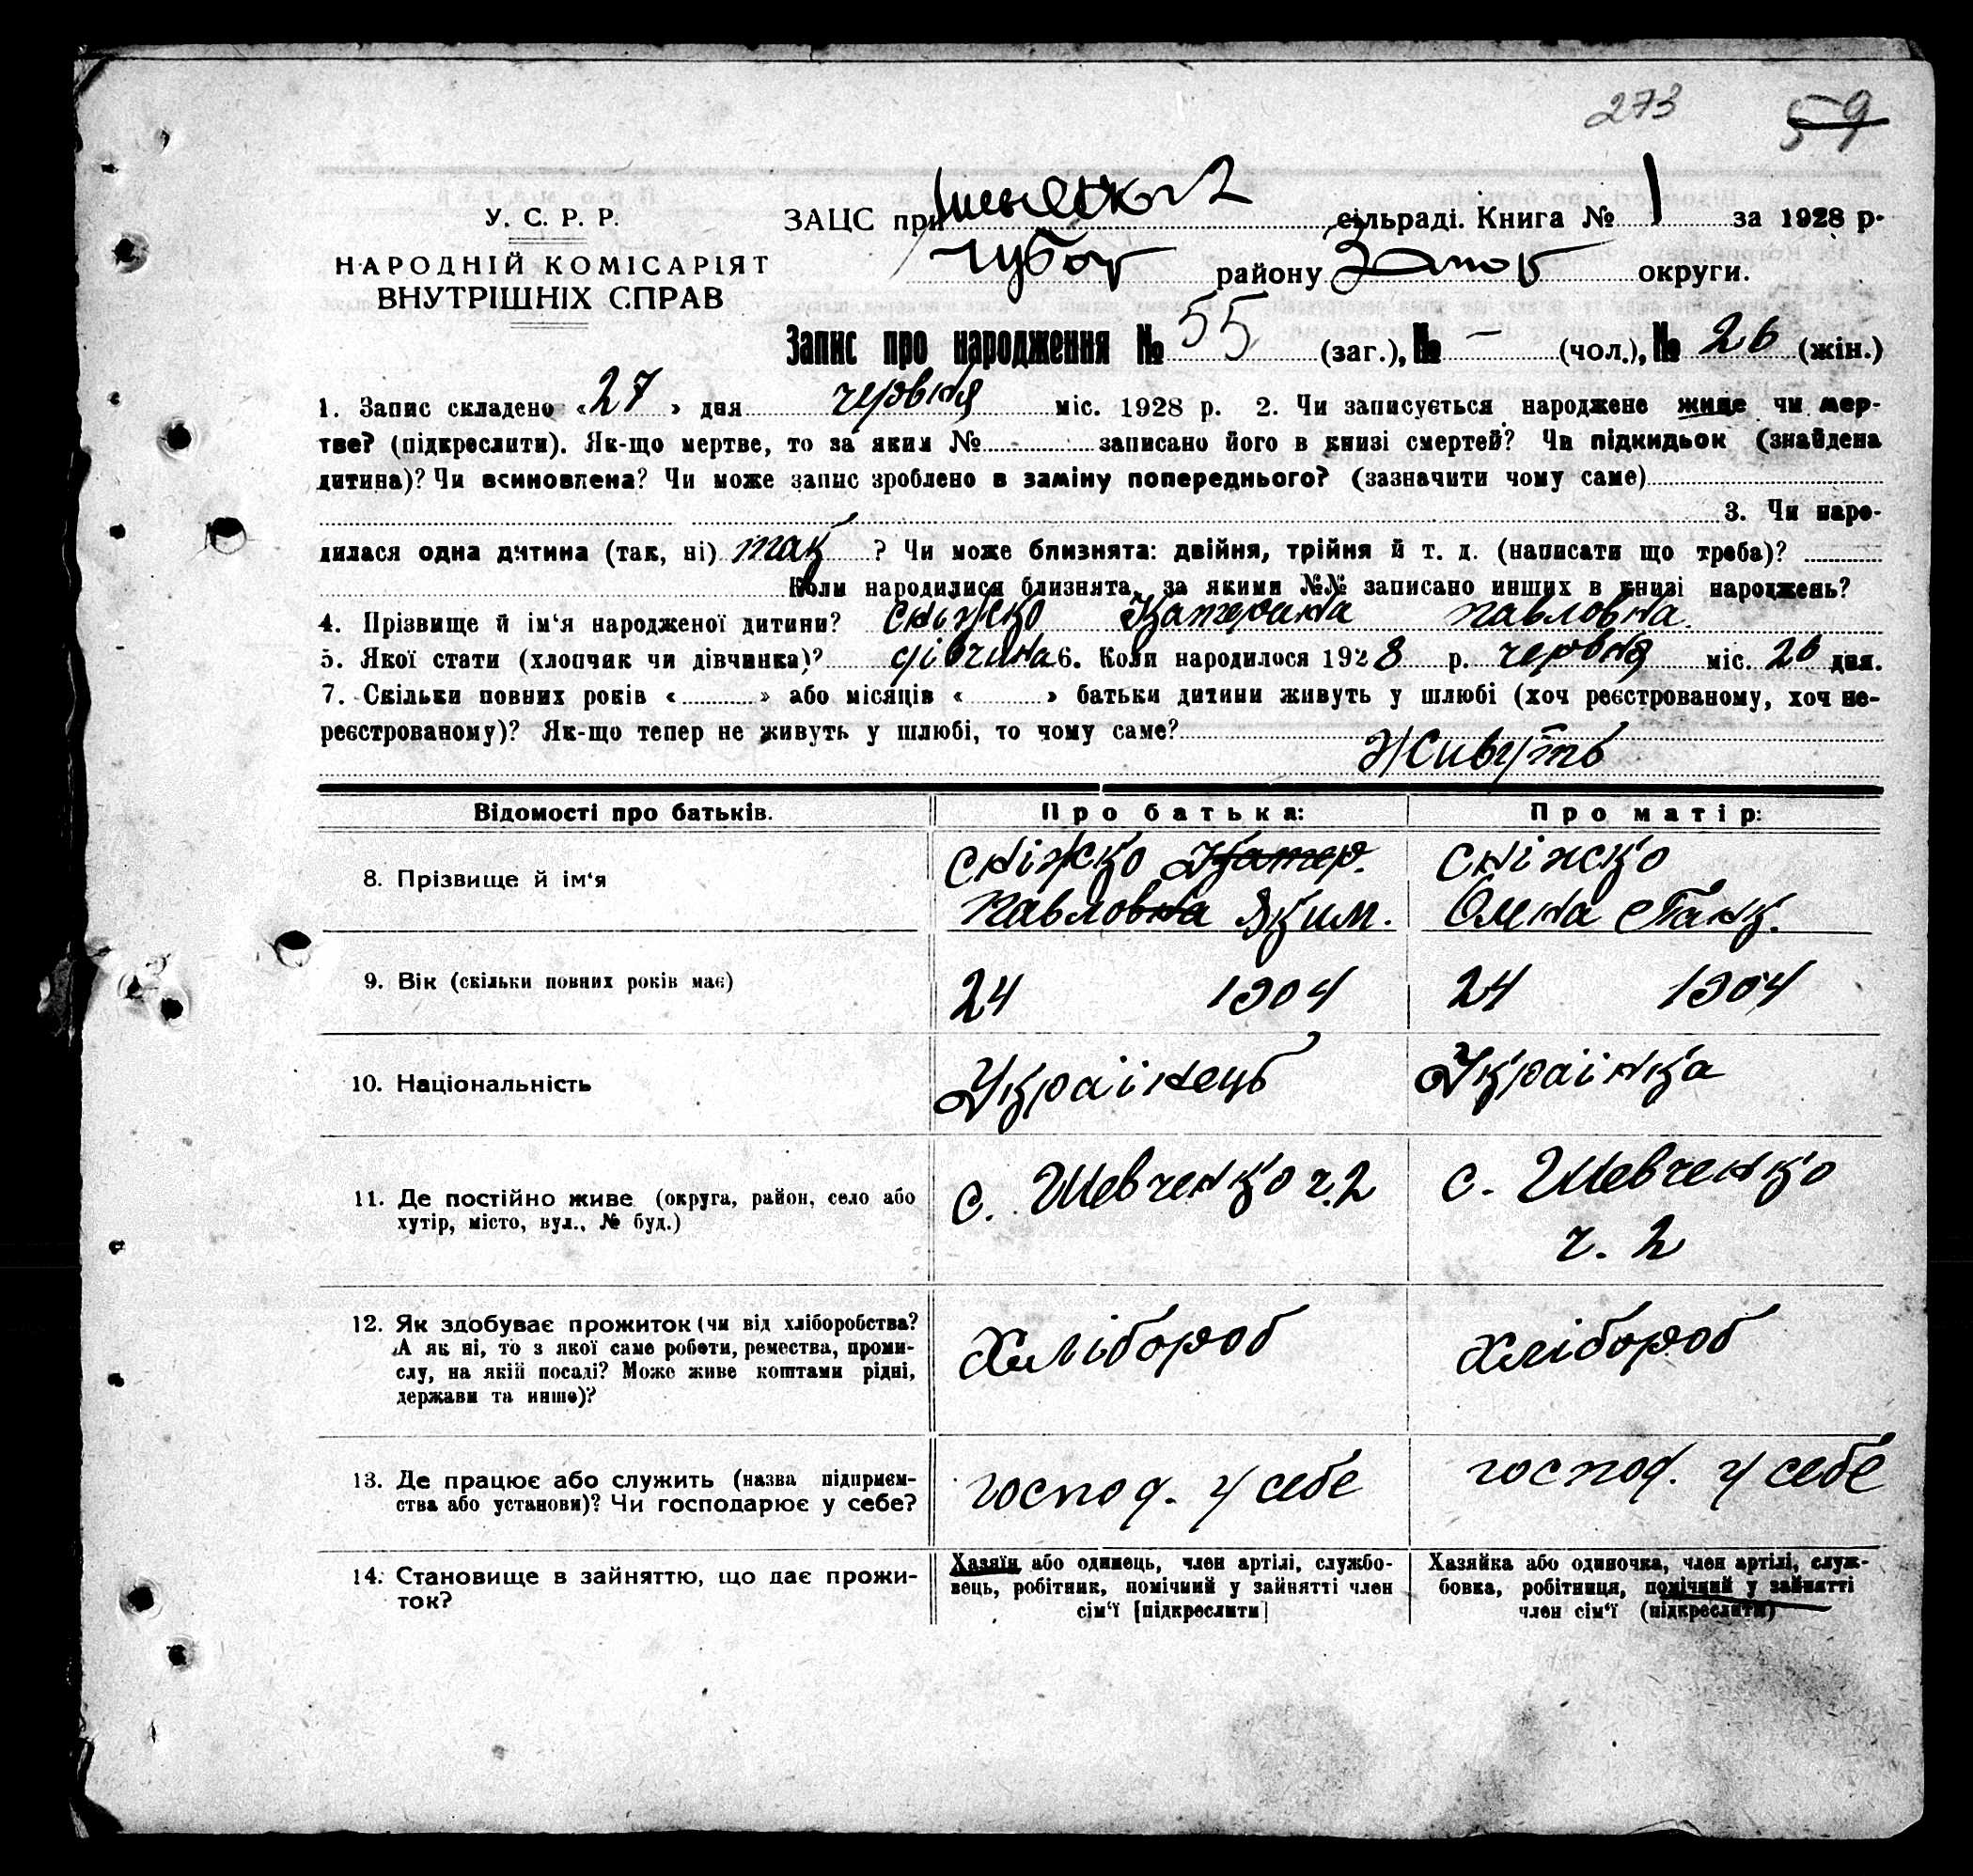 273 59
У. С. Р. Р.
НАРОДНІЙ КОМІСАРІЯТ
ВНУТРІШНІХ СПРАВ
ЗАЦС при 2 сільраді. Книга № 1 за 1928 р.
Чубар району Запоr округи.
Запис про народження № 55 (заг.), № - (чол.), № 26 (жін.)
1. Запис складено «27» дня червня міс. 1928 р. 2. Чи записується народжене живе чи мер-
тве? (підкреслити). Як-що мертве, то за яким № записано його в книзі смертей? Чи підкидьок (знайдена
дитина)? Чи всиновлена? Чи може запис зроблено в заміну попереднього? (зазначити чому саме)
3. Чи наро-
дилася одна дитина (так, ні) так ? Чи може близнята: двійня, трійня й т. д. (написати що треба)?
Коли народилися близнята, за якими №№ записано инших в книзі народжень?
4. Прізвище й ім'я народженої дитини? Сніжко Катерина Павловна.
5. Якої стати (хлопчик чи дівчинка)? дівчина 6. Коли народилося 1928 р. червня міс. 26 дня.
7. Скільки повних років « » або місяців « » батьки дитини живуть у шлюбі (хоч реєстрованому, хоч не-
реєстрованому)? Як-що тепер не живуть у шлюбі, то чому саме?
Живуть
Відомості про батьків. Про батька: Про матір:
8. Прізвище й ім'я
Сніжко Катер. Сніжко
Павловна Яким. Олена Панк.
9. Вік (скільки повних років має) 24 1904 24 1904
10. Національність Українець Українка
11. Де постійно живе (округа, район, село або
хутір, місто, вул., № буд.)
с. Шевченко ч. 2 с. Шевченко
ч. 2
12. Як здобуває прожиток (чи від хліборобства?
А як ні, то з якої саме роботи, ремества, проми-
слу, на якій посаді? Може живе коштами рідні,
держави та инше)?
Хлібороб Хлібороб
13. Де працює або служить (назва підприєм-
ства або установи)? Чи господарює у себе?
господ. у себе господ. у себе
14. Становище в зайняттю, що дає прожи-
ток?
Хазяїн або одинець, член артілі, службо-
вець, робітник, помічний у зайнятті член
сім'ї [підкреслити]
Хазяйка або одиночка, член артілі, служ-
бовка, робітниця, помічний у зайнятті
член сім'ї (підкреслити)